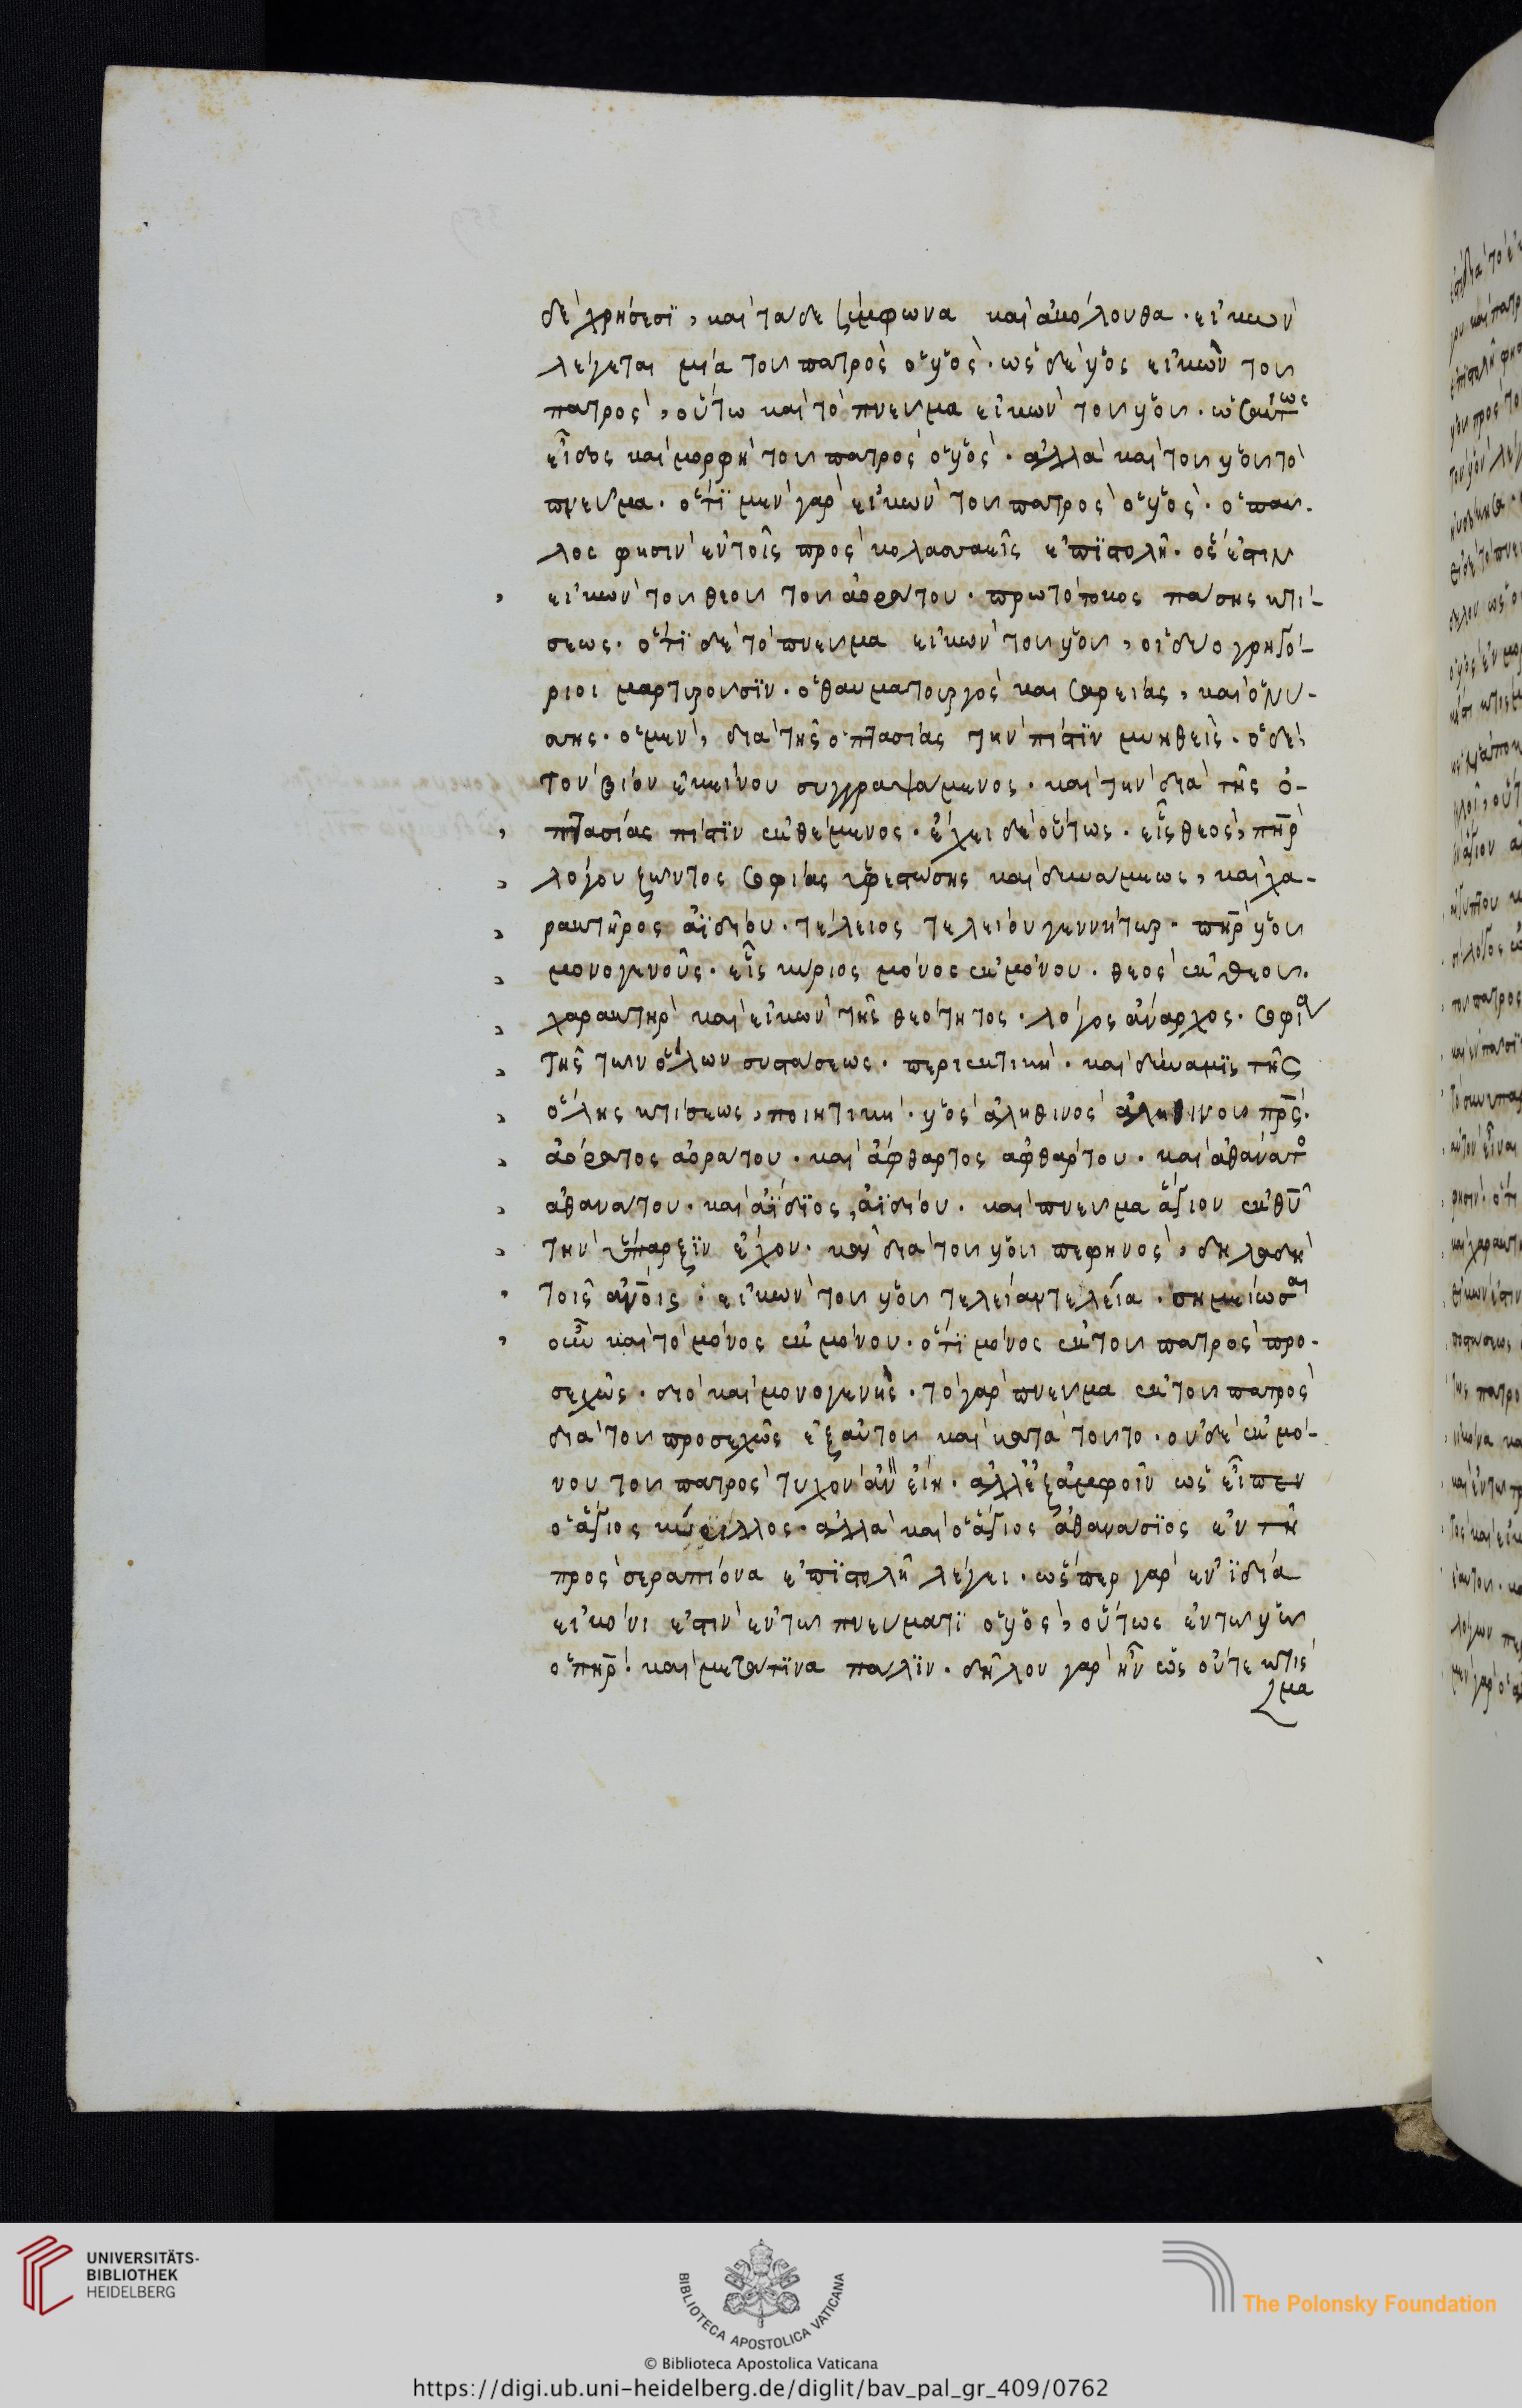 δὲ χρήσεσϊ, καὶ τὰ δὲ ξύμφωνα καὶ ἀκόλουθα. εἰκὼν
λέγεται μία τοῦ πατρὸς ὁ υἱός. ὡς δὲ υἱὸς εἰκὼν τοῦ
πατρὸς, οὕτω καὶ τὸ πνεῦμα εἰκὼν τοῦ υἱοῦ. ὡσαύτως
εἶδος καὶ μορφὴ τοῦ πατρὸς ὁ υἱὸς. ἀλλὰ καὶ τοῦ υἱοῦ τὸ
πνεῦμα. ὅτϊ μὲν γὰρ εἰκὼν τοῦ πατρὸς ὁ υἱὸς. ὁ παυ-
λος φησὶν ἐν τοῖς πρὸς κολασσαεῖς ἐπϊστολῆ. ὅς ἐστιν
εἰκὼν τοῦ θεοῦ τοῦ ἀοράτου. πρωτότοκος πάσης κτί-
σεως. ὅτϊ δὲ τὸ πνεῦμα εἰκὼν τοῦ υἱοῦ, οἱ δύο γρηγό-
ριοι μαρτυροῦσϊν. ὁ θαυματουργὸς καὶ σαρείας, καὶ ὁ νύ-
σης. ὁ μὲν, διὰ τῆς ὀπτασίας τὴν πίστϊν μυηθεὶς. ὁ δὲ
τὸν βίον ἐκείνου συγγραψάμενος. καὶ τὴν διὰ τῆς ὀ-
πτασίας πίστϊν ἐκθέμενος. ἔχει δὲ οὕτως. εἷς θεὸς, πηρ
λόγου ζῶντος σοφίας ὑφεστώσης καὶ δυνάμεως, καὶ χα-
ρακτῆρος ἀϊδίου. τέλειος τελείου γεννήτωρ. πηρ υἱοῦ
μονογενοῦς. εἷς κύριος μόνος ἐκ μόνου. θεὸς ἐκ θεοῦ.
χαρακτὴρ καὶ εἰκὼν τῆς θεότητος. λόγος ἄναρχος. σοφία
τῆς τῶν ὅλων συστάσεως. περιεκτικὴ. καὶ δύναμϊς τῆς
ὅλης κτίσεως, ποιητικὴ. υἱὸς ἀληθινὸς ἀληθινοῦ πρς.
ἀόρατος ἀοράτου. καὶ ἄφθαρτος ἀφθάρτου. καὶ ἀθάνατο
ἀθανάτου. καὶ ἀΐδϊος, ἀϊδίου. καὶ πνεῦμα ἅγιον ἐκ θυ
τὴν ὕπαρξϊν ἔχον. καὶ διὰ τοῦ υἱοῦ πεφηνὸς, δηλαδὴ
τοῖς ἀνοις. εἰκὼν τοῦ υἱοῦ τελείου τελεία. σημείωσαι
οὖν καὶ τὸ μόνος ἐκ μόνου. ὅτϊ μόνος ἐκ τοῦ πατρὸς προ-
σεχῶς. διὸ καὶ μονογενὴς. τὸ γὰρ πνεῦμα ἐκ τοῦ πατρὸς
διὰ τοῦ προσεχῶς ἐξ αὐτοῦ καὶ κατὰ τοῦτο. οὐδὲ ἐκ μό-
νου τοῦ πατρὸς τυχὸν ἂν εἴη. ἀλλ' ἐξ ἀμφοῖν ὡς εἶπεν
ὁ ἅγιος κύριλλος. ἀλλὰ καὶ ὁ ἅγιος ἀθανάσϊος ἐν τῆ
πρὸς σεραπίονα ἐπϊστολῆ λέγει. ὥσπερ γὰρ ἐν ϊδία
εἰκόνι ἐστὶν ἐν τῶ πνεύματϊ ὁ υἱὸς, οὕτως ἐν τῶ υἱῶ
ὁ πηρ. καὶ μετά τϊνα πάλϊν. δῆλον γὰρ ἦν ὡς οὔτε κτίς
μα
UNIVERSITÄTS-
BIBLIOTHEK
HEIDELBERG
BIBLIOTECA APOSTOLICA VATICANA
The Polonsky Foundation
© Biblioteca Apostolica Vaticana
https://digi.ub.uni-heidelberg.de/diglit/bav_pal_gr_409/0762